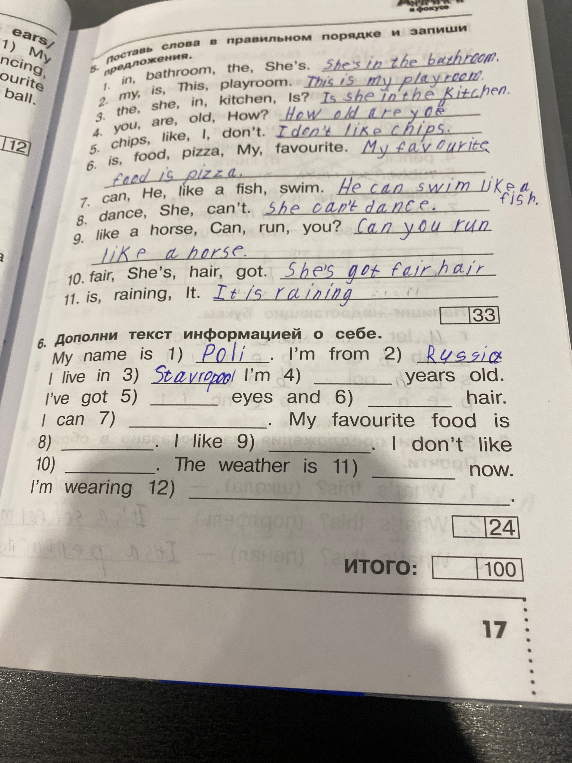 ears/
1) My
ncing,
ourite
ball.
12
в фокусе
5. Поставь слова в правильном порядке и запиши
предложения.
1. in, bathroom, the, She's. She's in the bathroom.
2. my, is, This, playroom. This is my playroom.
3. the, she, in, kitchen, Is? Is she in the kitchen.
4. you, are, old, How? How old are yoe
5. chips, like, I, don't. I don't like chips.
6. is, food, pizza, My, favourite. My favourite
food is pizza.
7. can, He, like a fish, swim. He can swim like a
fish.
8. dance, She, can't. She can't dance.
9. like a horse, Can, run, you? Can you run
like a horse.
10. fair, She's, hair, got. She's got fair hair
11. is, raining, It. It is raining
33
6. Дополни текст информацией о себе.
My name is 1) Poli. I'm from 2) Russia
I live in 3) Stavropol I'm 4) ________ years old.
I've got 5) ________ eyes and 6) ________ hair.
I can 7) ________. My favourite food is
8) ________. I like 9) ________. I don't like
10) ________. The weather is 11) ________ now.
I'm wearing 12) ________.
24
ИТОГО: 100
17